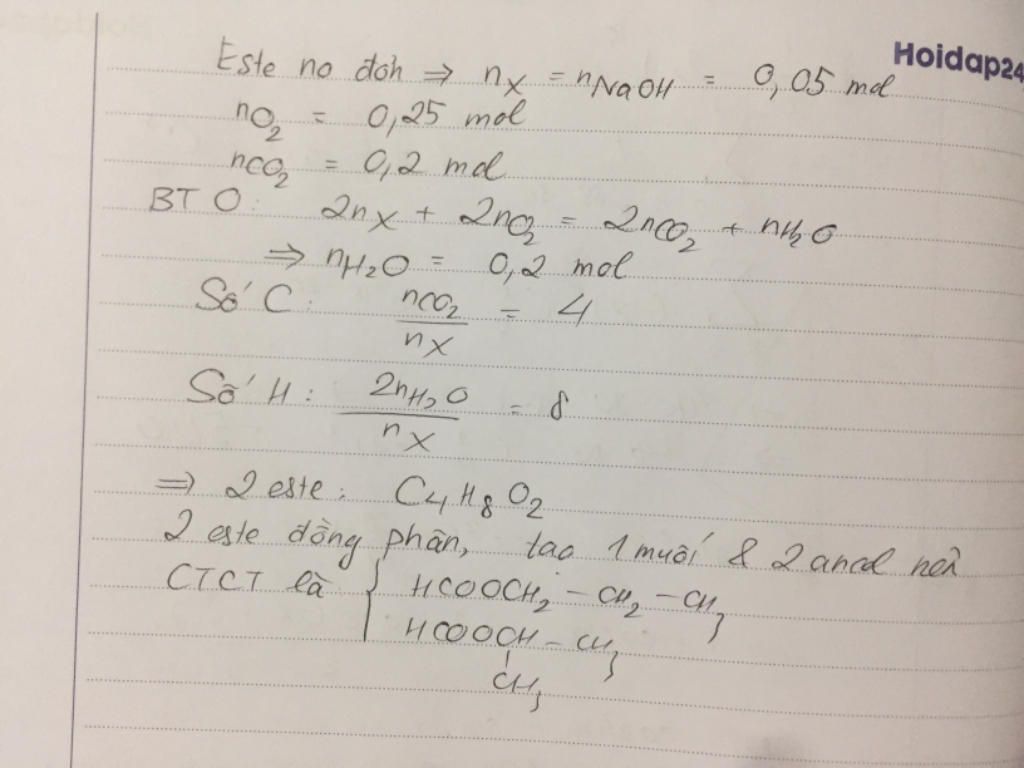 Hoidap24
Este no đơn ⇒ nX = nNaOH = 0,05 mol
nO2 = 0,25 mol
nCO2 = 0,2 mol
BT O: 2nX + 2nO2 = 2nCO2 + nH2O
⇒ nH2O = 0,2 mol
Số C: nCO2 / nX = 4
Số H: 2nH2O / nX = 8
⇒ 2 este: C4H8O2
2 este đồng phân, tạo 1 muối & 2 ancol nên
CTCT là { HCOOCH2 – CH2 – CH3
HCOOCH – CH3
CH3